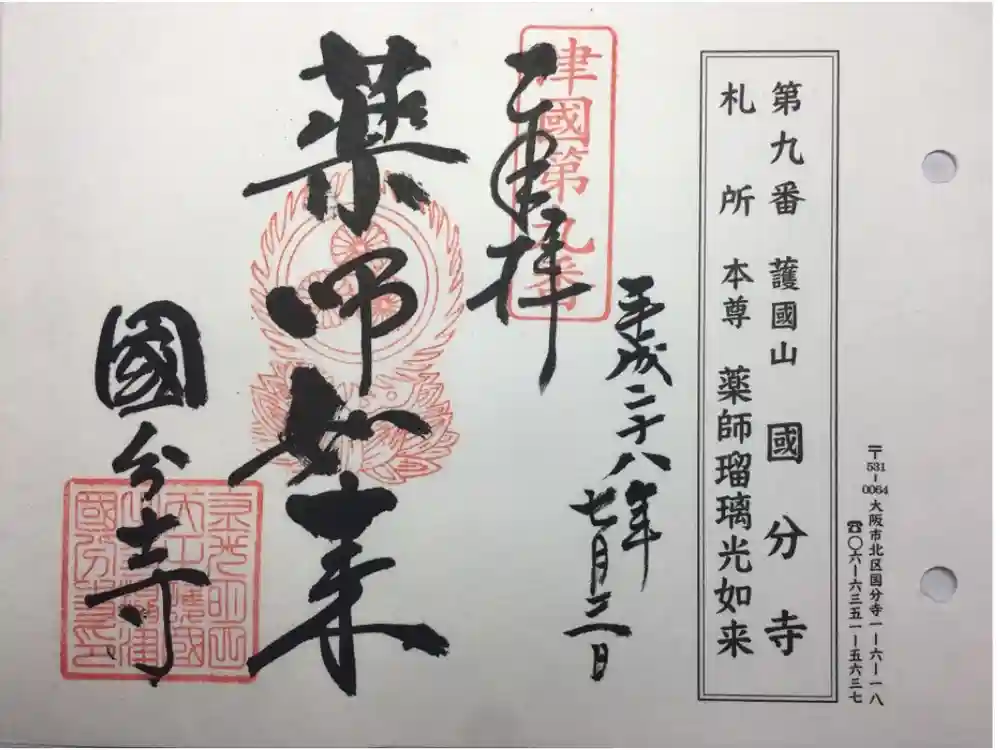 〒531-0064 大阪市北区国分寺一-六-一八
☎〇六-六三五一-五六三七
第九番 護國山 國分寺
札所 本尊 薬師瑠璃光如来
平成二十八年
七月二日
津國第九番
奉拝
薬师如来
國分寺